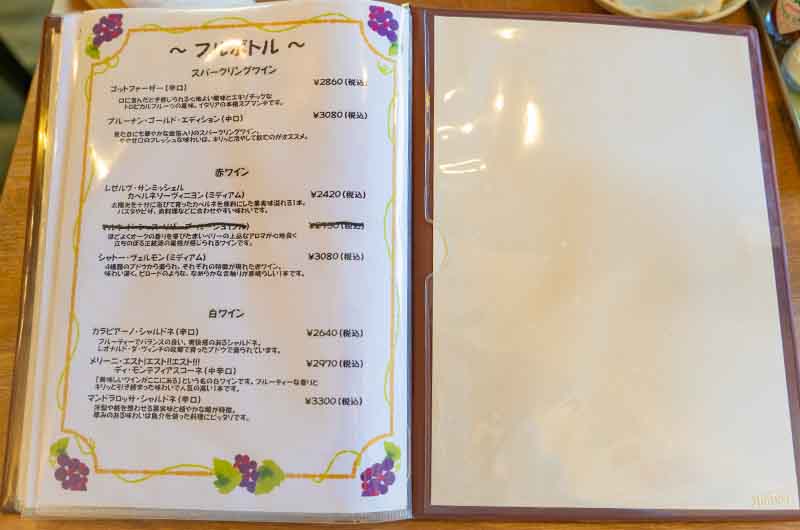 ～ フルボトル ～
スパークリングワイン
ゴットファーザー(辛口) ¥2860(税込)
口に含んだと予感しられる心地よい酸味とエキゾチックな
トロピカルフルーツの風味。イタリアの本格スプマンテです。
ブルーナン・ゴールド・エディション(辛口) ¥3080(税込)
見た目にも華やかな金箔入りのスパークリングワイン。
やや甘口のフレッシュな味わいは、キリッと冷やして飲むのがオススメ。
赤ワイン
レゼルヴ・サンミッシェル
カベルネソーヴィニヨン(ミディアム) ¥2420(税込)
太陽光を十分に浴びて育ったカベルネを原料にした果実味溢れる1本。
パスタやピザ、肉料理などに合わせやすい味わいです。
(税込)
ほどよくオークの香りを帯びた赤いベリーの上品なアロマが心地良く
立ちのぼる正統派の風格が感じられるワインです。
シャトー・ヴェルモン(ミディアム) ¥3080(税込)
4種類のブドウから造られ、それぞれの特徴が現れた赤ワイン。
味わい深く、ビロードのような、なめらかな舌触りが素晴らしい1本です。
白ワイン
カラビアーノ・シャルドネ(辛口) ¥2640(税込)
フルーティーでバランスの良い、爽快感のあるシャルドネ。
レオナルド・ダ・ヴィンチの故郷で育ったブドウで造られています。
メリーニ・エスト!エスト!!エスト!!! ¥2970(税込)
ディ・モンテフィアスコーネ(中辛口)
「美味しいワインがここにある」という名の白ワインです。フルーティーな香りと
キリッと引き締まった味わいで人気の高い1本です。
マンドラロッサ・シャルドネ(辛口) ¥3300(税込)
洋梨や桃を想わせる果実味と穏やかな酸が特徴。
厚みのある味わいは魚介を使った料理にピッタリです。